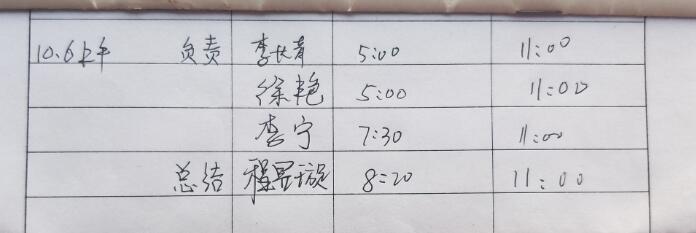 10.6上午 负责 李长青 5:00 11:00
徐艳 5:00 11:00
李宁 7:30 11:00
总结 程昱旋 8:20 11:00